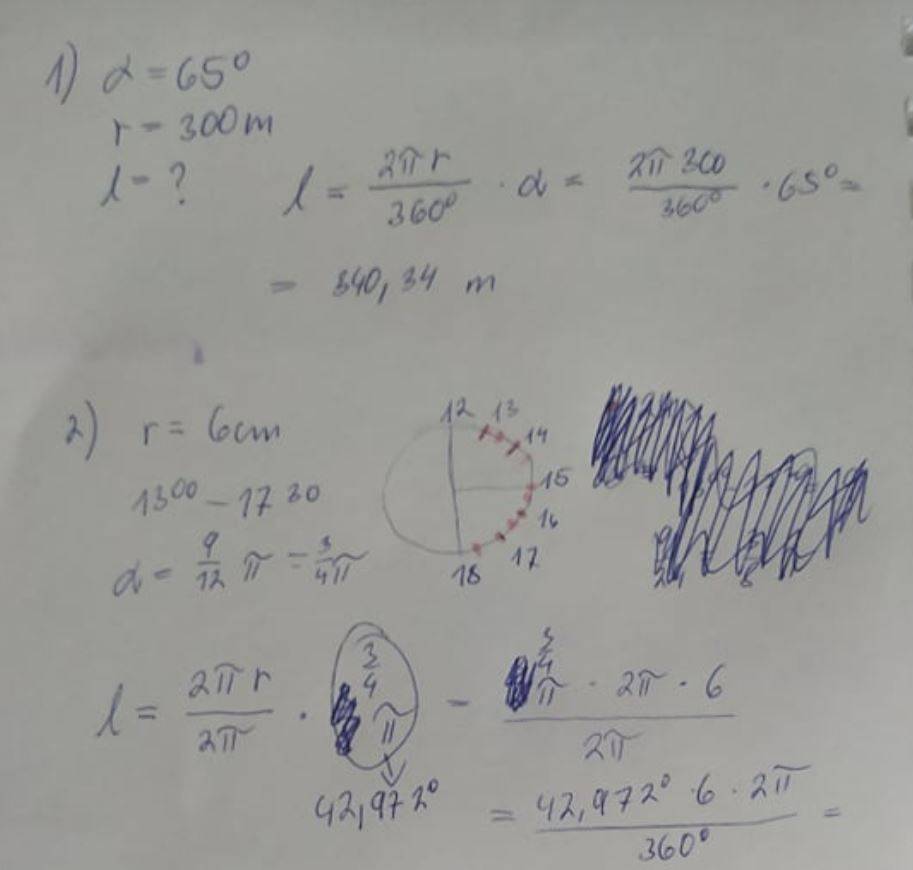 1) α = 65°
r = 300 m
l = ?
l = 2πr/360° · α = 2π 300/360° · 65° =
= 340,34 m
2) r = 6cm
13⁰⁰ - 17 30
α = 9/12 π = 3/4 π
12 13 14 15 16 17 18
l = 2πr/2π · 3/4 π = 3/4 π · 2π · 6/2π
42,972°
= 42,972° · 6 · 2π/360° =